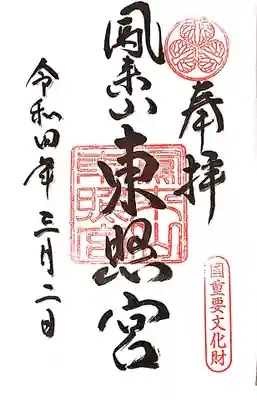 奉拝
国重要文化財
鳳来山東照宮
令和四年三月二日